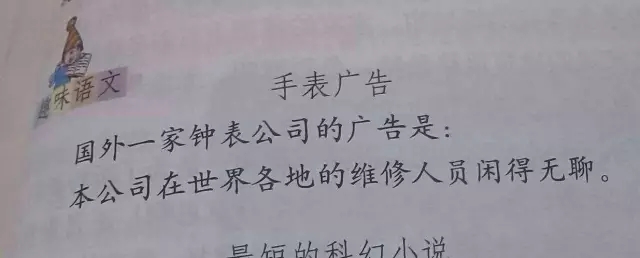 趣味语文
手表广告
国外一家钟表公司的广告是：
本公司在世界各地的维修人员闲得无聊。
最短的科幻小说